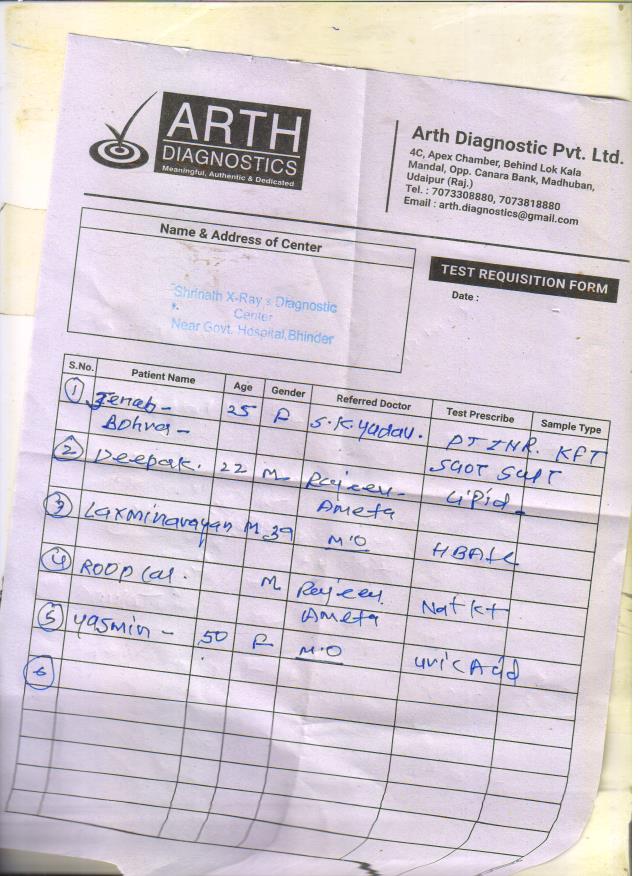 ARTH
DIAGNOSTICS
Meaningful, Authentic & Dedicated
Arth Diagnostic Pvt. Ltd.
4C, Apex Chamber, Behind Lok Kala
Mandal, Opp. Canara Bank, Madhuban,
Udaipur (Raj.)
Tel. : 7073308880, 7073818880
Email : arth.diagnostics@gmail.com
Name & Address of Center
Shrinath X-Ray & Diagnostic
Center
Near Govt. Hospital,Bhinder
TEST REQUISITION FORM
Date :
S.No. Patient Name Age Gender Referred Doctor Test Prescribe Sample Type
1 Jenab - 25 F S.K. Yadav. PT INR. KFT
Bohra - SGOT SGPT
2 Deepak. 22 M Rajeev - Lipid -
Ameta
3 Laxminarayan M 39 M.O HBA1C
4 ROOP Lal. M Rajeev Nat Kt
Ameta
5 Yasmin - 50 F M.O Uric Acid
6